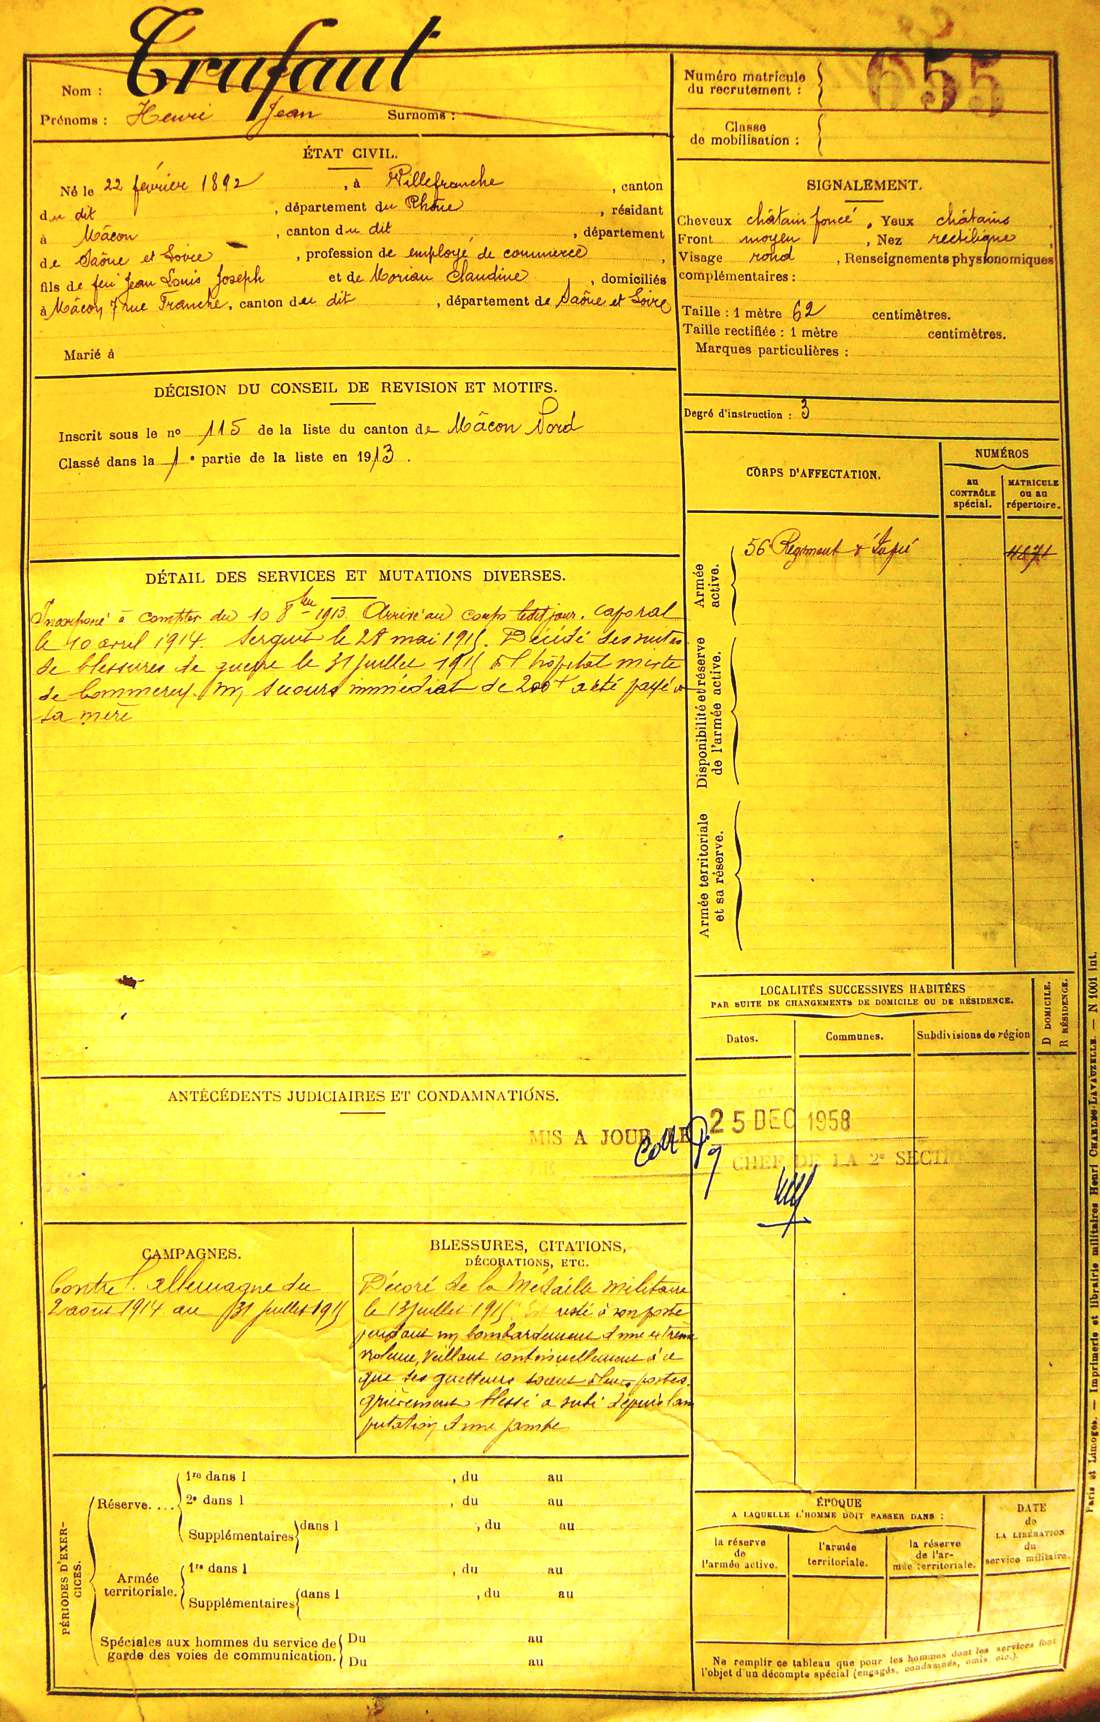 Nom : Trufaut
Prénoms : Henri Jean Surnoms :
Numéro matricule
du recrutement : 655
Classe
de mobilisation :
ÉTAT CIVIL.
Né le 22 février 1892, à Villefranche, canton
du dit, département du Rhône, résidant
à Mâcon, canton du dit, département
de Saône et Loire, profession de employé de commerce,
fils de feu Jean Louis Joseph et de Morian Claudine, domiciliés
à Mâcon, 7 rue Franche, canton du dit, département de Saône et Loire
Marié à
SIGNALEMENT.
Cheveux châtain foncé, Yeux châtains
Front moyen, Nez rectiligne,
Visage rond, Renseignements physionomiques
complémentaires :
Taille : 1 mètre 62 centimètres.
Taille rectifiée : 1 mètre centimètres.
Marques particulières :
Degré d'instruction : 3
DÉCISION DU CONSEIL DE REVISION ET MOTIFS.
Inscrit sous le no 115 de la liste du canton de Mâcon Nord
Classé dans la 1e partie de la liste en 1913.
CORPS D'AFFECTATION.
NUMÉROS
au
CONTRÔLE
spécial.
MATRICULE
ou au
répertoire.
Armée
active.
56e Régiment d'Infie
Disponibilité et réserve
de l'armée active.
Armée territoriale
et sa réserve.
DÉTAIL DES SERVICES ET MUTATIONS DIVERSES.
Incorporé à compter du 10 8bre 1913. Arrivé au corps ledit jour. Caporal
le 10 avril 1914. Sergent le 28 mai 1915. Décédé des suites
de blessures de guerre le 31 juillet 1915 à l'hôpital mixte
de Commercy. Un secours immédiat de 200f a été payé à
sa mère
LOCALITÉS SUCCESSIVES HABITÉES
PAR SUITE DE CHANGEMENTS DE DOMICILE OU DE RÉSIDENCE.
Dates.
Communes.
Subdivisions de région
D DOMICILE.
R RÉSIDENCE.
ANTÉCÉDENTS JUDICIAIRES ET CONDAMNATIONS.
MIS A JOUR LE 25 DEC 1958
LE CHEF DE LA 2e SECTI
CAMPAGNES.
Contre l'allemagne du
2 aout 1914 au 31 juillet 1915
BLESSURES, CITATIONS,
DÉCORATIONS, ETC.
Décoré de la Médaille militaire
le 13 juillet 1915. Est resté à son poste
pendant un bombardement d'une extrême
violence, veillant continuellement à ce
que ses guetteurs soient à leurs postes.
grièvement blessé a subi depuis l'am
putation d'une jambe
PÉRIODES D'EXER-
CICES.
Réserve....
1re dans l , du au
2e dans l , du au
Supplémentaires dans l , du au
Armée
territoriale.
1re dans l , du au
Supplémentaires dans l , du au
Spéciales aux hommes du service de
garde des voies de communication.
Du au
Du au
ÉPOQUE
A LAQUELLE L'HOMME DOIT PASSER DANS :
la réserve
de
l'armée active.
l'armée
territoriale.
la réserve
de l'ar-
mée territoriale.
DATE
de
LA LIBÉRATION
du
service militaire.
Ne remplir ce tableau que pour les hommes dont les services font
l'objet d'un décompte spécial (engagés, condamnés, omis, etc.).
Paris et Limoges. — Imprimerie et librairie militaires Henri CHARLES-LAVAUZELLE. — N 1001 int.